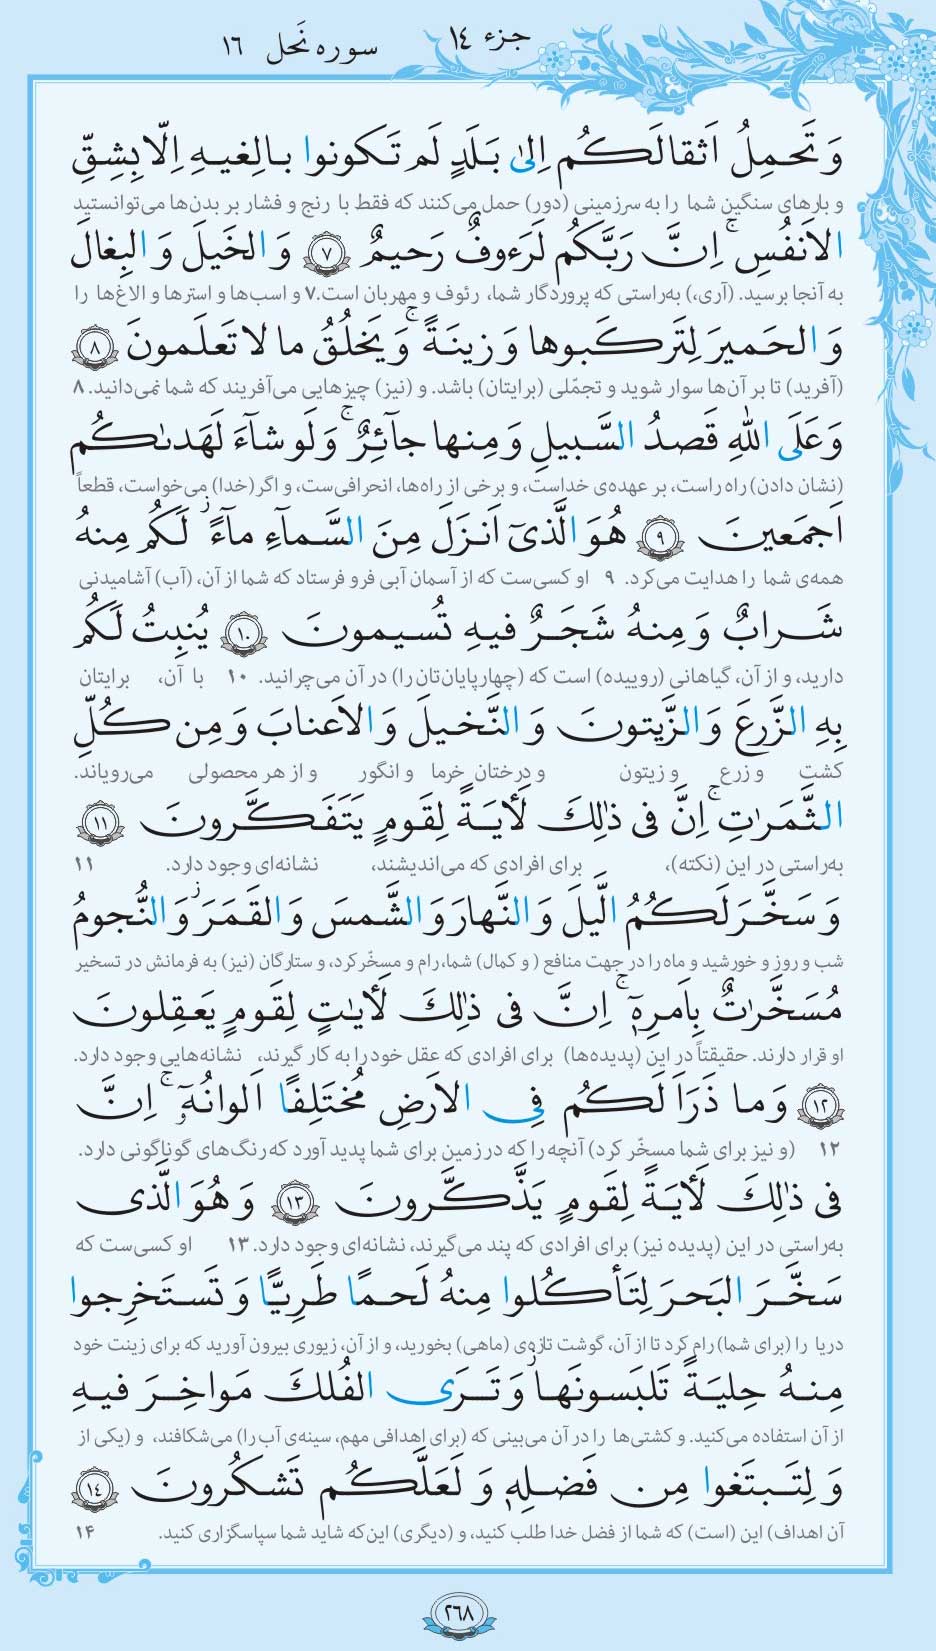 جزء ١٤
سوره نَحل ١٦
وَ تَحمِلُ اَثقالَكُم اِلىٰ بَلَدٍ لَم تَكونوا بالِغيهِ اِلّا بِشِقِّ
و بارهای سنگین شما را به سرزمینی (دور) حمل می‌کنند که فقط با رنج و فشار بر بدن‌ها می‌توانستید
الاَنفُسِ ۚ اِنَّ رَبَّكُم لَرَءوفٌ رَحيمٌ ٧ وَ الخَيلَ وَ البِغالَ
به آنجا برسید. (آری،) به‌راستی که پروردگار شما، رئوف و مهربان است. ۷ و اسب‌ها و استرها و الاغ‌ها را
وَ الحَميرَ لِتَركَبوها وَ زينَةً ۚ وَ يَخلُقُ ما لا تَعلَمونَ ٨
(آفرید) تا بر آن‌ها سوار شوید و تجمّلی (برایتان) باشد. و (نیز) چیزهایی می‌آفریند که شما نمی‌دانید. ۸
وَ عَلَى اللهِ قَصدُ السَّبيلِ وَ مِنها جآئِرٌ ۚ وَ لَو شآءَ لَهَدىٰكُم
(نشان دادن) راه راست، بر عهده‌ی خداست، و برخی از راه‌ها، انحرافی‌ست، و اگر (خدا) می‌خواست، قطعاً
اَجمَعينَ ٩ هُوَ الَّذىٓ اَنزَلَ مِنَ السَّمآءِ مآءً ۖ لَكُم مِنهُ
همه‌ی شما را هدایت می‌کرد. ۹ او کسی‌ست که از آسمان آبی فرو فرستاد که شما از آن، (آب) آشامیدنی
شَرابٌ وَ مِنهُ شَجَرٌ فيهِ تُسيمونَ ١٠ يُنبِتُ لَكُم
دارید، و از آن، گیاهانی (روییده) است که (چهارپایان‌تان را) در آن می‌چرانید. ۱۰ با آن، برایتان
بِهِ الزَّرعَ وَ الزَّيتونَ وَ النَّخيلَ وَ الاَعنابَ وَ مِن كُلِّ
کشت و زرع و زیتون و درختان خرما و انگور و از هر محصولی می‌رویاند.
الثَّمَرٰتِ ۚ اِنَّ فى ذٰلِكَ لَأيَةً لِقَومٍ يَتَفَكَّرونَ ١١
به‌راستی در این (نکته)، برای افرادی که می‌اندیشند، نشانه‌ای وجود دارد. ۱۱
وَ سَخَّرَ لَكُمُ الَّيلَ وَ النَّهارَ وَ الشَّمسَ وَ القَمَرَ ۖ وَ النُّجومُ
شب و روز و خورشید و ماه را در جهت منافع (و کمال) شما، رام و مسخّر کرد، و ستارگان (نیز) به فرمانش در تسخیر
مُسَخَّرٰتٌ بِاَمرِهٖٓ ۚ اِنَّ فى ذٰلِكَ لَأيٰتٍ لِقَومٍ يَعقِلونَ
او قرار دارند. حقیقتاً در این (پدیده‌ها) برای افرادی که عقل خود را به کار گیرند، نشانه‌هایی وجود دارد.
١٢ وَ ما ذَرَاَ لَكُم فِى الاَرضِ مُختَلِفًا اَلوانُهٗٓ ۚ اِنَّ
۱۲ (و نیز برای شما مسخّر کرد) آنچه را که در زمین برای شما پدید آورد که رنگ‌های گوناگونی دارد.
فى ذٰلِكَ لَأيَةً لِقَومٍ يَذَّكَّرونَ ١٣ وَ هُوَ الَّذى
به‌راستی در این (پدیده نیز) برای افرادی که پند می‌گیرند، نشانه‌ای وجود دارد. ۱۳ او کسی‌ست که
سَخَّرَ البَحرَ لِتَأكُلوا مِنهُ لَحمًا طَرِيًّا وَ تَستَخرِجوا
دریا را (برای شما) رام کرد تا از آن، گوشت تازه‌ی (ماهی) بخورید، و از آن، زیوری بیرون آورید که برای زینت خود
مِنهُ حِليَةً تَلبَسونَها ۖ وَ تَرَى الفُلكَ مَواخِرَ فيهِ
از آن استفاده می‌کنید. و کشتی‌ها را در آن می‌بینی که (برای اهدافی مهم، سینه‌ی آب را) می‌شکافند، و (یکی از
وَ لِتَبتَغوا مِن فَضلِهٖ وَ لَعَلَّكُم تَشكُرونَ ١٤
آن اهداف) این (است) که شما از فضل خدا طلب کنید، و (دیگری) این‌که شاید شما سپاسگزاری کنید. ۱۴
٢٦٨